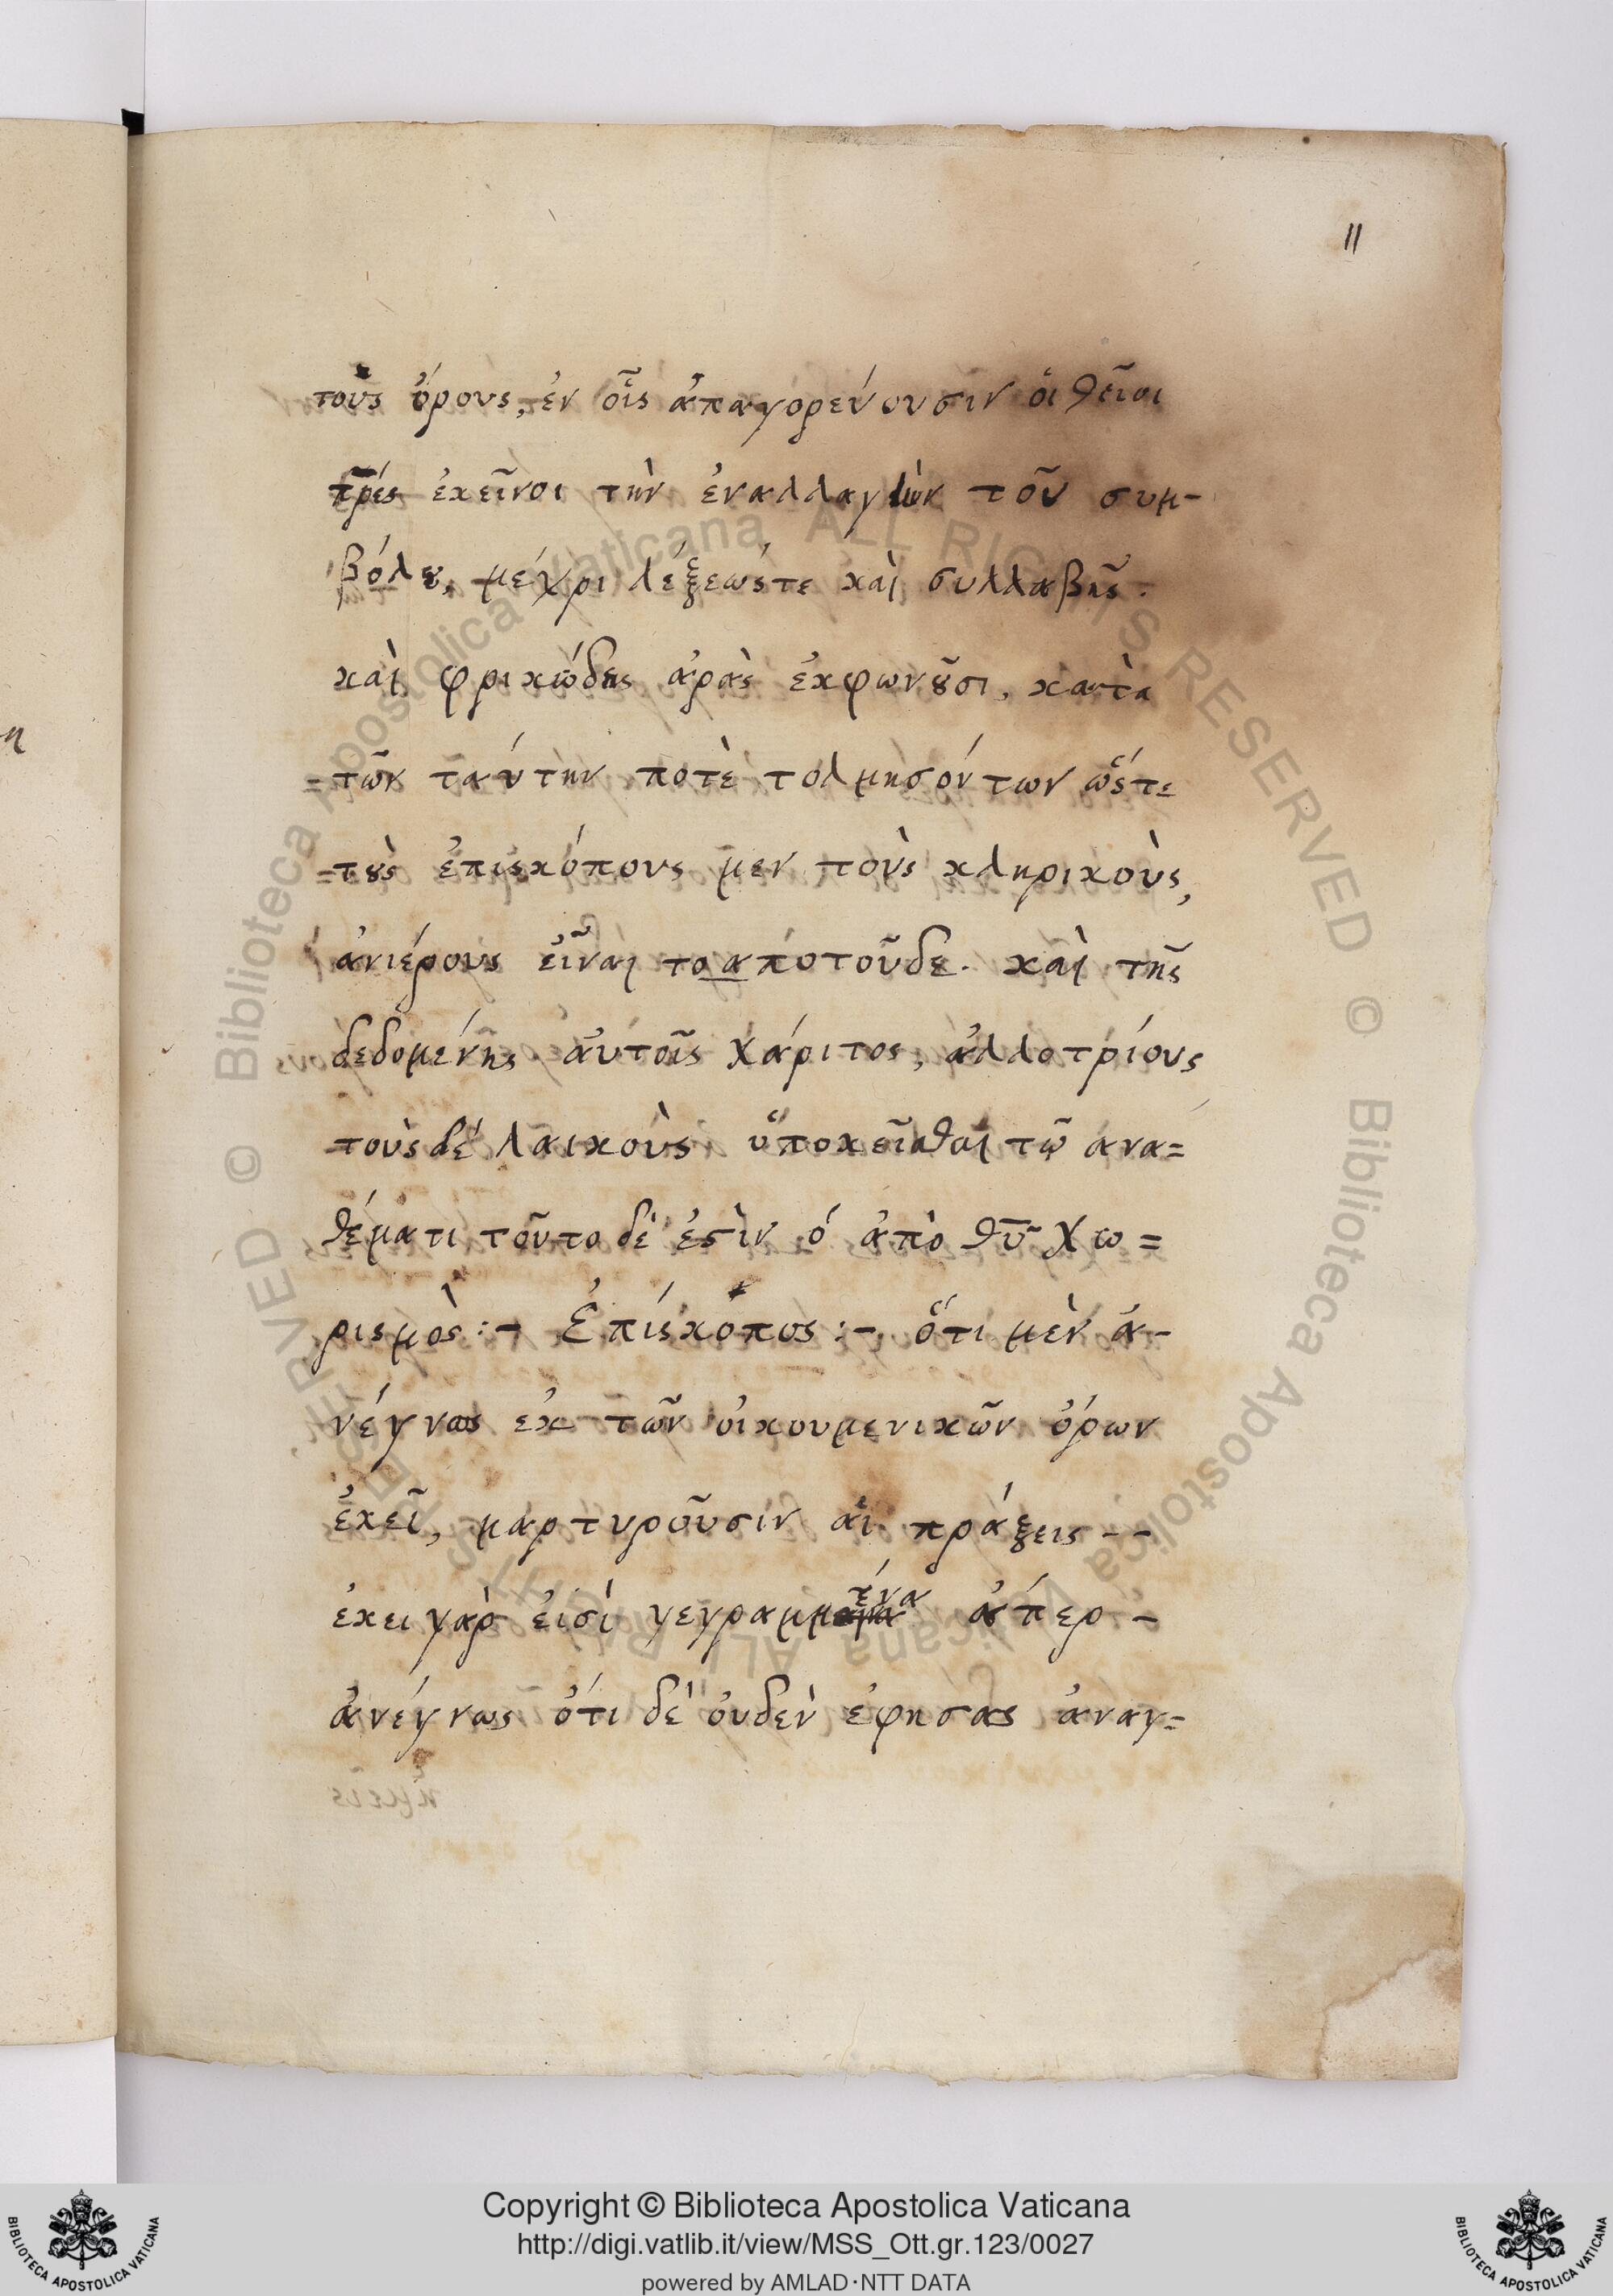 11
τοὺς ὅρους, ἐν οἷς ἀπαγορεύουσιν ὁι θεῖοι
π̅ρ̅ες ἐκεῖνοι τὴν ἐναλλαγὴν τοῦ συμ-
βόλȣ, μέχρι λέξεώςτε καὶ συλλαβῆς.
καὶ φρικώδης ἀρὰς ἐκφωνȣ͂σι, κατὰ
=τῶν ταύτην ποτὲ τολμησόντων ὥςτε
=τȣ̀ς ἐπισκόπους μεν τοὺς κληρικοὺς,
ἀνιέρους εἶναι το αποτοῦδε. καὶ τῆς
δεδομένης αὐτοῖς χάριτος, ἀλλοτρίους
τοὺς δὲ λαικοὺς ὑποκεῖσθαι τῶ ανα=
θέματι τοῦτο δέ ἐϛὶν ὁ ἀπὸ θ̅υ̅ χω=
ρισμὸς :- Ἐπίσκοπος :- ὅτι μὲν ἀ-
νέγνως ἐκ τῶν οἰκουμενικῶν ὅρων
ἐκεῖ, μαρτυροῦσιν αἱ πράξεις - -
ἐκει γὰρ εἰσὶ γεγραμμένα ἅπερ -
ἀνέγνως ὅτι δὲ οὐδὲν ἐφησας ἀναγ=
Copyright © Biblioteca Apostolica Vaticana
http://digi.vatlib.it/view/MSS_Ott.gr.123/0027
powered by AMLAD·NTT DATA
BIBLIOTECA APOSTOLICA VATICANA
BIBLIOTECA APOSTOLICA VATICANA